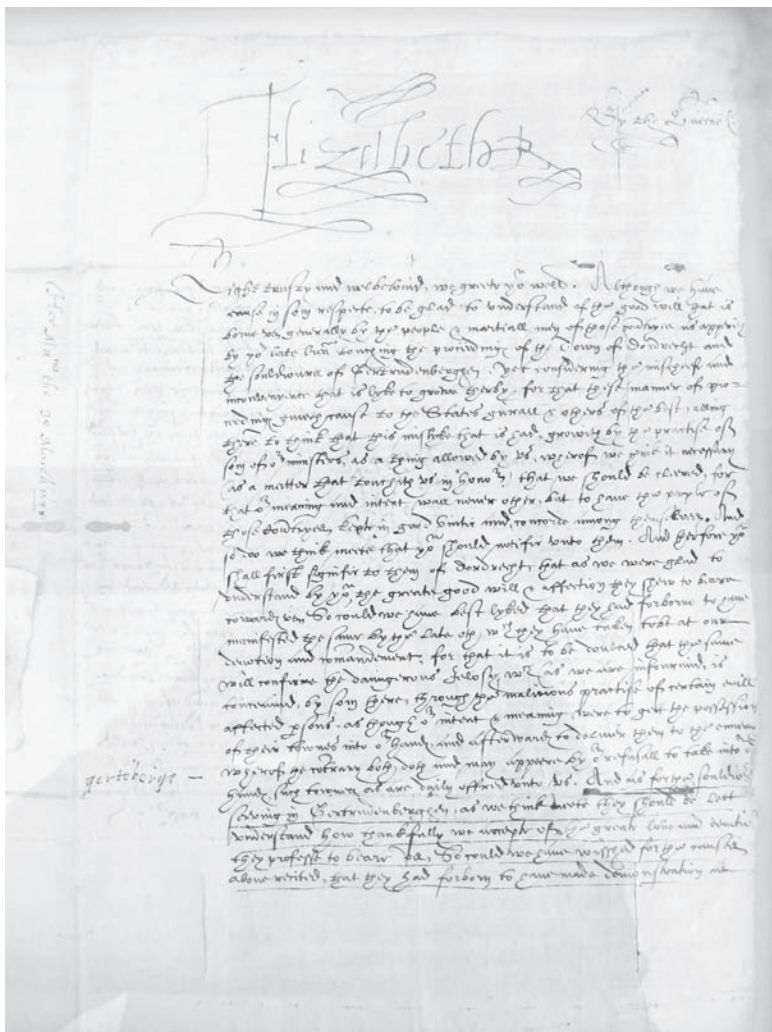 Elizabeth R
By the Queene
Right trusty and welbeloved, we greete yoᵘ well. Although we have
cause in som respecte, to be glad to understand of the good will that is
borne us generally by the people & martiall men of those contryes as appered
by yoʳ late touching the proceeding of the Town of Dordrecht and
the souldiours of Gertrudenberghen. Yet considering the mischief and
inconvenience that is lyke to growe therby, for that these manner of pro-
ceedings giveth cause to the States generall & others of the best
there to think that this mislike that is had, groweth by the practise of
som of oʳ ministers, as a thing allowed by us, wherof we think it necessary
as a matter that toucheth us in honoʳ, that we should be cleered, for
that oʳ meaning and intent was never other, but to have the people of
those countryes kept in good unitie and concorde among themselves. And
so doo we think meete that yoᵘ should notifie unto them. And therfore yoᵘ
shall first signifie to them of Dordrecht, that as we were glad to
understand by yoᵘ, the greate good will & affection they shew to beare
towards us, So could we have best lyked that they had forborne to have
manifested the same by the late oth, wᶜʰ they have taken to be at our
devotion and comandement, for that it is to be doubted that the same
will confirme the daungerous Jelosy, wᶜʰ as we are infourmed, is
conceaved, by som there, through the malicious practise of certain evill
affected psons, as though oʳ intent & meaning were to gett the possession
of their townes into oʳ hands, and afterwards to deliver them to the enemie
wherof the contrary both doth and may appeere by oʳ refusall to take into oʳ
hands, such townes as are daily offred unto us. And as for the souldiers
serving in Gertrudenberghen, as we think meete they should be lett
understand how thankfully we accepte of the greate love and devotion
they professe to beare us, So could we have wisshed for the causes
above recited, that they had forborn to have made demonstration